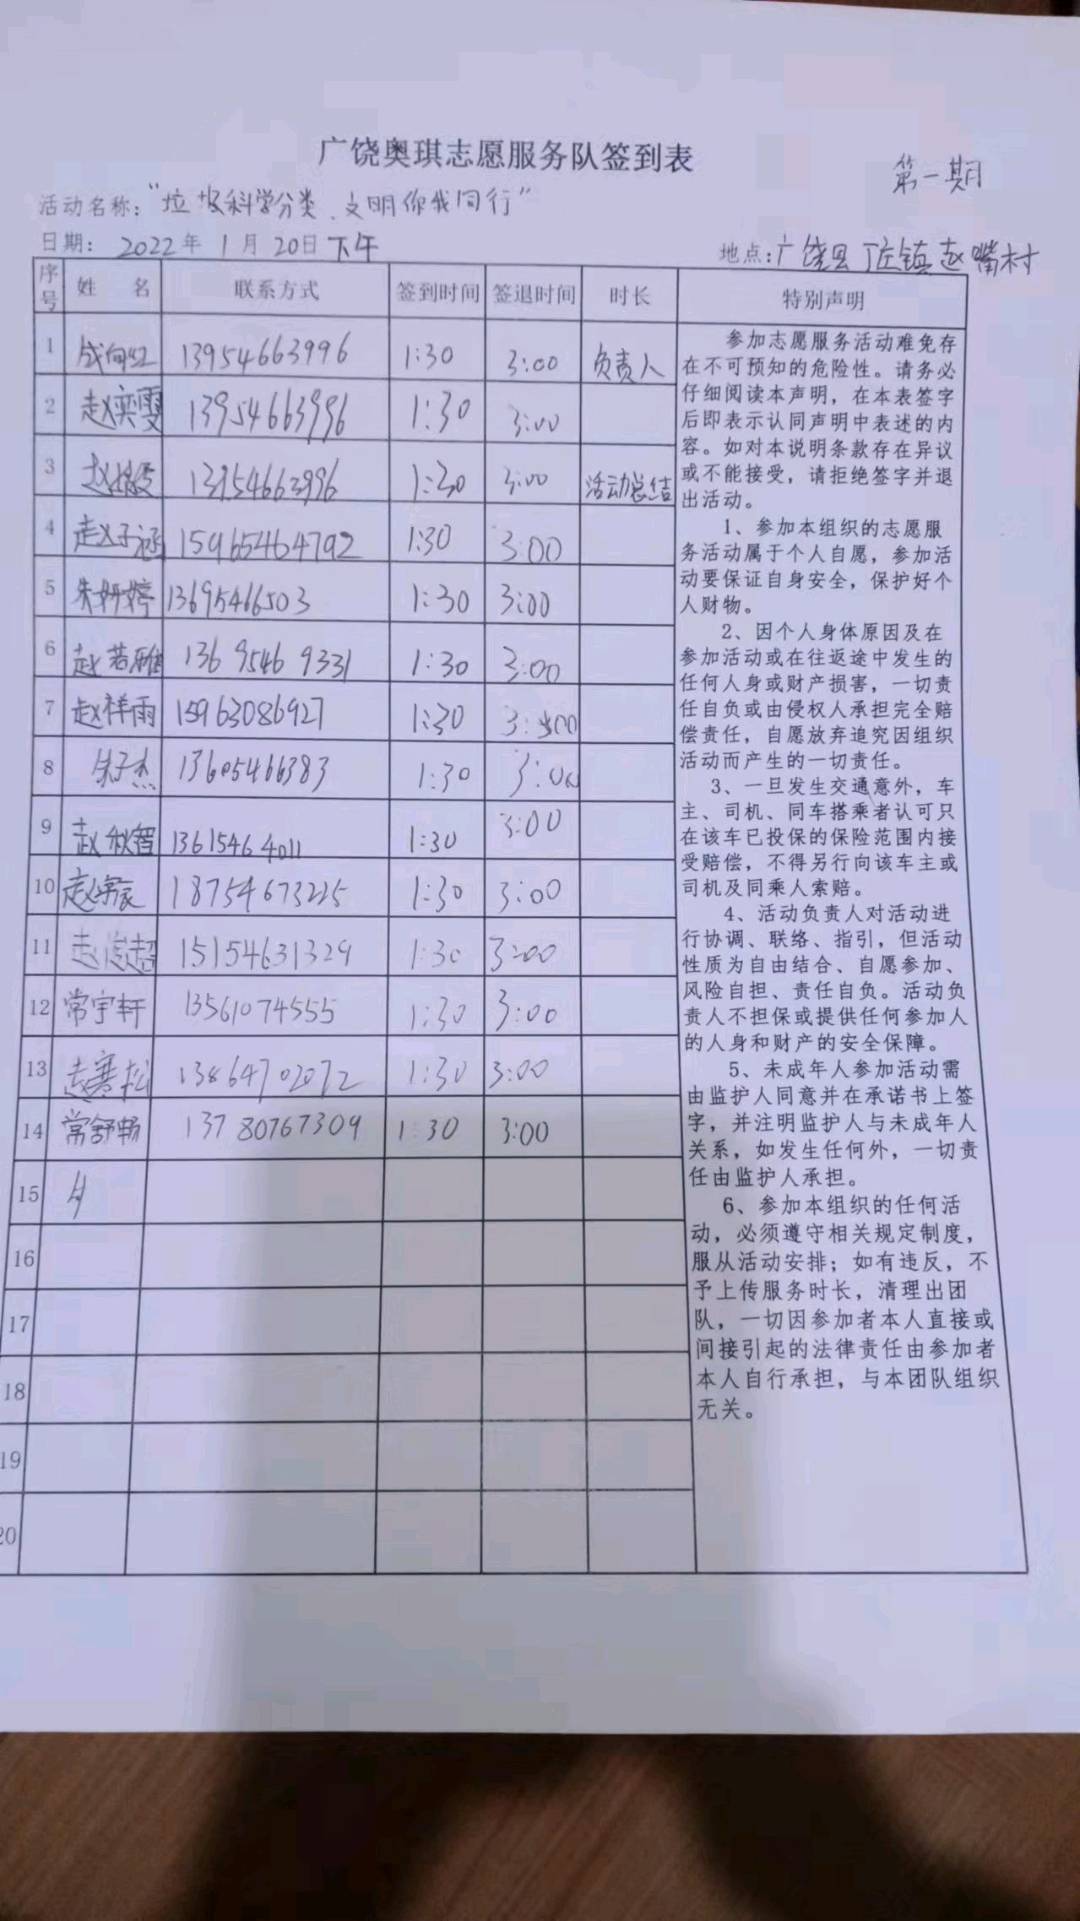 广饶奥琪志愿服务队签到表
第一期
活动名称：“垃圾科学分类、文明你我同行”
日期： 2022年 1月 20日下午
地点：广饶县丁庄镇赵嘴村
序号 姓 名 联系方式 签到时间 签退时间 时长 特别声明
1 成向红 13954663996 1:30 3:00 负责人
2 赵奕雯 13954663996 1:30 3:00
3 赵 13954663996 1:30 3:00 活动总结
4 赵子涵 15965464792 1:30 3:00
5 朱妍婷 13695466503 1:30 3:00
6 赵若雅 136 9546 9331 1:30 3:00
7 赵祥雨 15963086927 1:30 3:00
8 朱子杰 13605466383 1:30 3:00
9 赵秋智 13615464011 1:30 3:00
10 赵 18754673225 1:30 3:00
11 赵 超 15154631329 1:30 3:00
12 常宇轩 13561074555 1:30 3:00
13 赵寒松 13864702072 1:30 3:00
14 常舒畅 13780767309 1:30 3:00
15
16
17
18
19
20
参加志愿服务活动难免存
在不可预知的危险性。请务必
仔细阅读本声明，在本表签字
后即表示认同声明中表述的内
容。如对本说明条款存在异议
或不能接受，请拒绝签字并退
出活动。
1、参加本组织的志愿服
务活动属于个人自愿，参加活
动要保证自身安全，保护好个
人财物。
2、因个人身体原因及在
参加活动或在往返途中发生的
任何人身或财产损害，一切责
任自负或由侵权人承担完全赔
偿责任，自愿放弃追究因组织
活动而产生的一切责任。
3、一旦发生交通意外，车
主、司机、同车搭乘者认可只
在该车已投保的保险范围内接
受赔偿，不得另行向该车主或
司机及同乘人索赔。
4、活动负责人对活动进
行协调、联络、指引，但活动
性质为自由结合、自愿参加、
风险自担、责任自负。活动负
责人不担保或提供任何参加人
的人身和财产的安全保障。
5、未成年人参加活动需
由监护人同意并在承诺书上签
字，并注明监护人与未成年人
关系，如发生任何外，一切责
任由监护人承担。
6、参加本组织的任何活
动，必须遵守相关规定制度，
服从活动安排；如有违反，不
予上传服务时长，清理出团
队，一切因参加者本人直接或
间接引起的法律责任由参加者
本人自行承担，与本团队组织
无关。